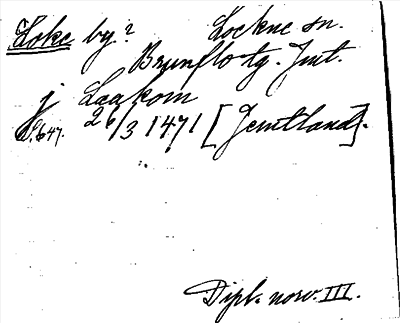 Loke by? Lockne sn.
Brunflo tg. Jmt.
j Laakom
S. 647. 26/3 1471 [Jemtland].
Dipl. norv. III.